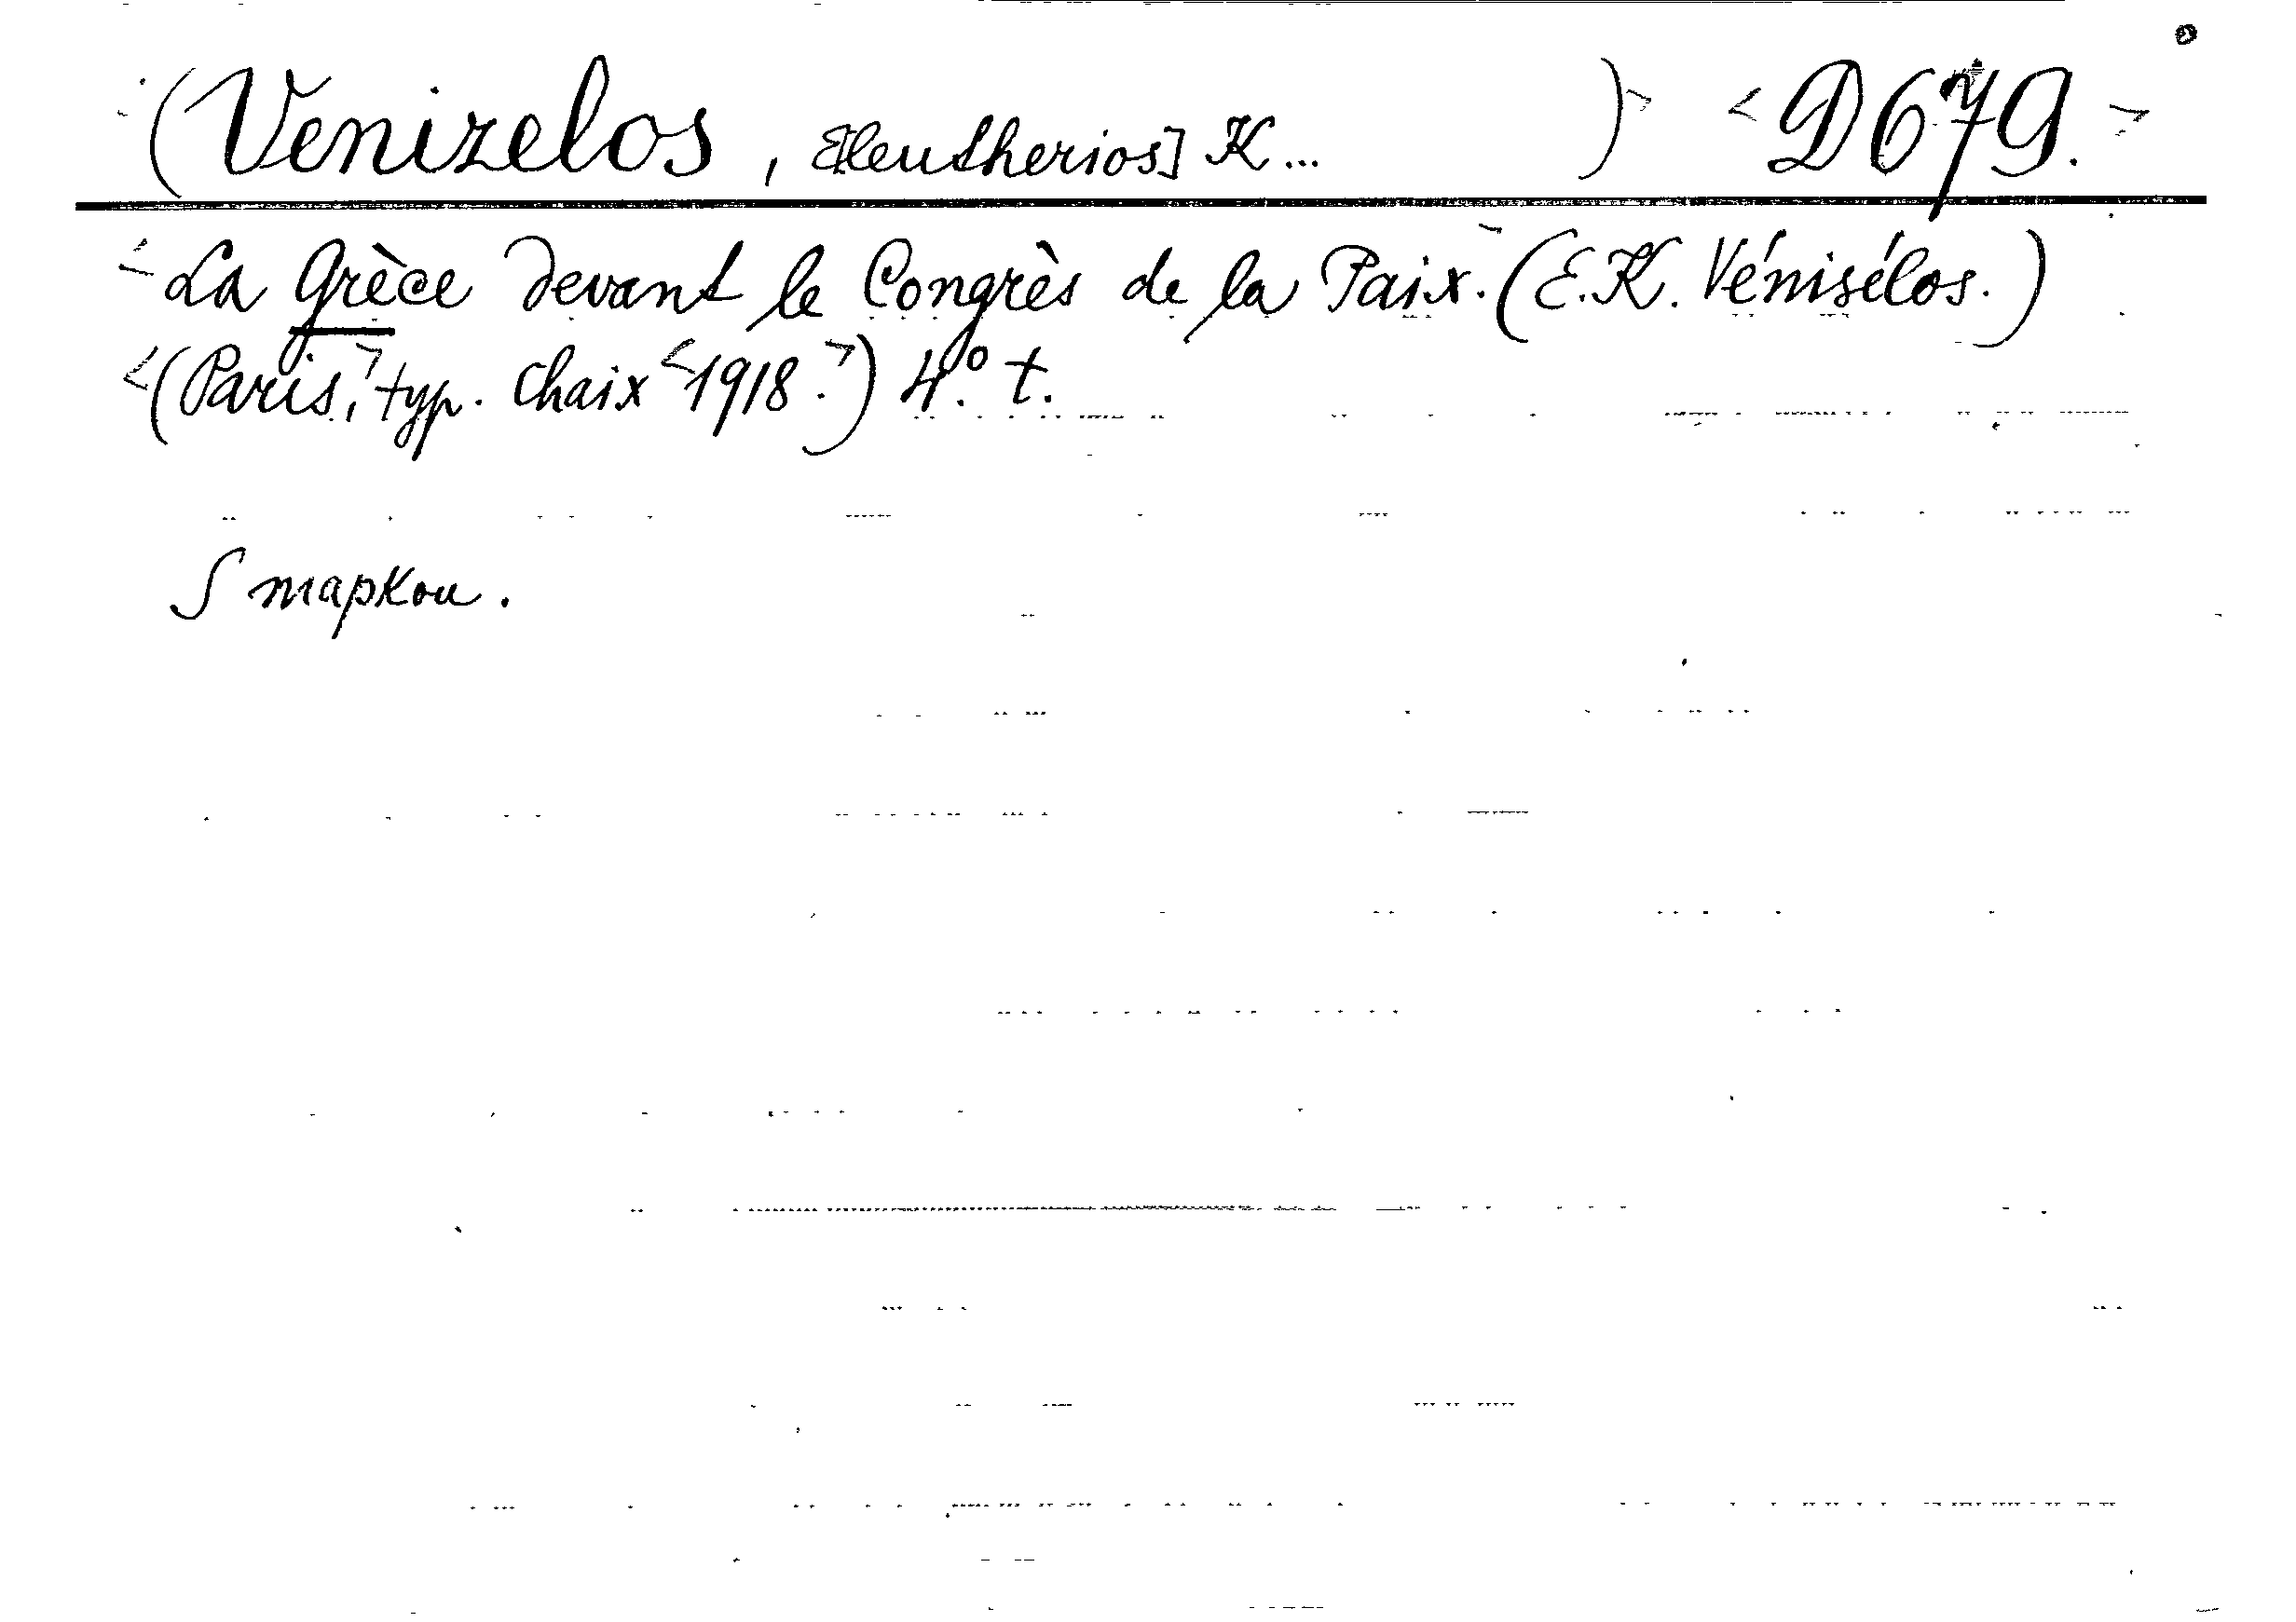 (Venizelos, E[leutherios] K... ) <D679.>
<La Grèce devant le Congrès de la Paix.> (E.K. Vénisélos.)
<(Paris,> typ. Chaix <1918.>) 4.° t.